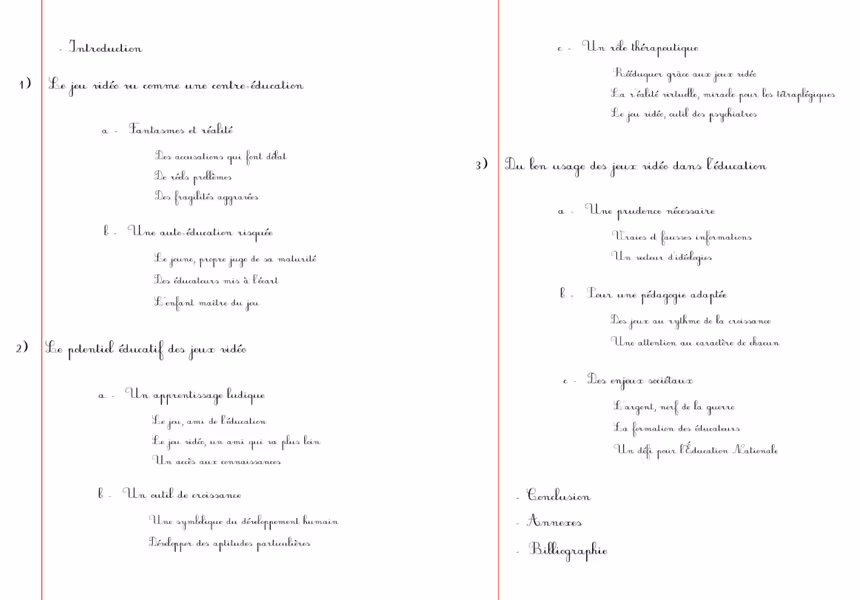 - Introduction
1) Le jeu vidéo vu comme une contre-éducation
a - Fantasmes et réalité
Des accusations qui font débat
De réels problèmes
Des fragilités aggravées
b - Une auto-éducation risquée
Le jeune, propre juge de sa maturité
Des éducateurs mis à l'écart
L'enfant maître du jeu
2) Le potentiel éducatif des jeux vidéo
a - Un apprentissage ludique
Le jeu, ami de l'éducation
Le jeu vidéo, un ami qui va plus loin
Un accès aux connaissances
b - Un outil de croissance
Une symbolique du développement humain
Développer des aptitudes particulières
c - Un rôle thérapeutique
Rééduquer grâce aux jeux vidéo
La réalité virtuelle, miracle pour les tétraplégiques
Le jeu vidéo, outil des psychiatres
3) Du bon usage des jeux vidéo dans l'éducation
a - Une prudence nécessaire
Vraies et fausses informations
Un vecteur d'idéologies
b - Pour une pédagogie adaptée
Des jeux au rythme de la croissance
Une attention au caractère de chacun
c - Des enjeux sociétaux
L'argent, nerf de la guerre
La formation des éducateurs
Un défi pour l'Éducation Nationale
- Conclusion
- Annexes
- Bibliographie